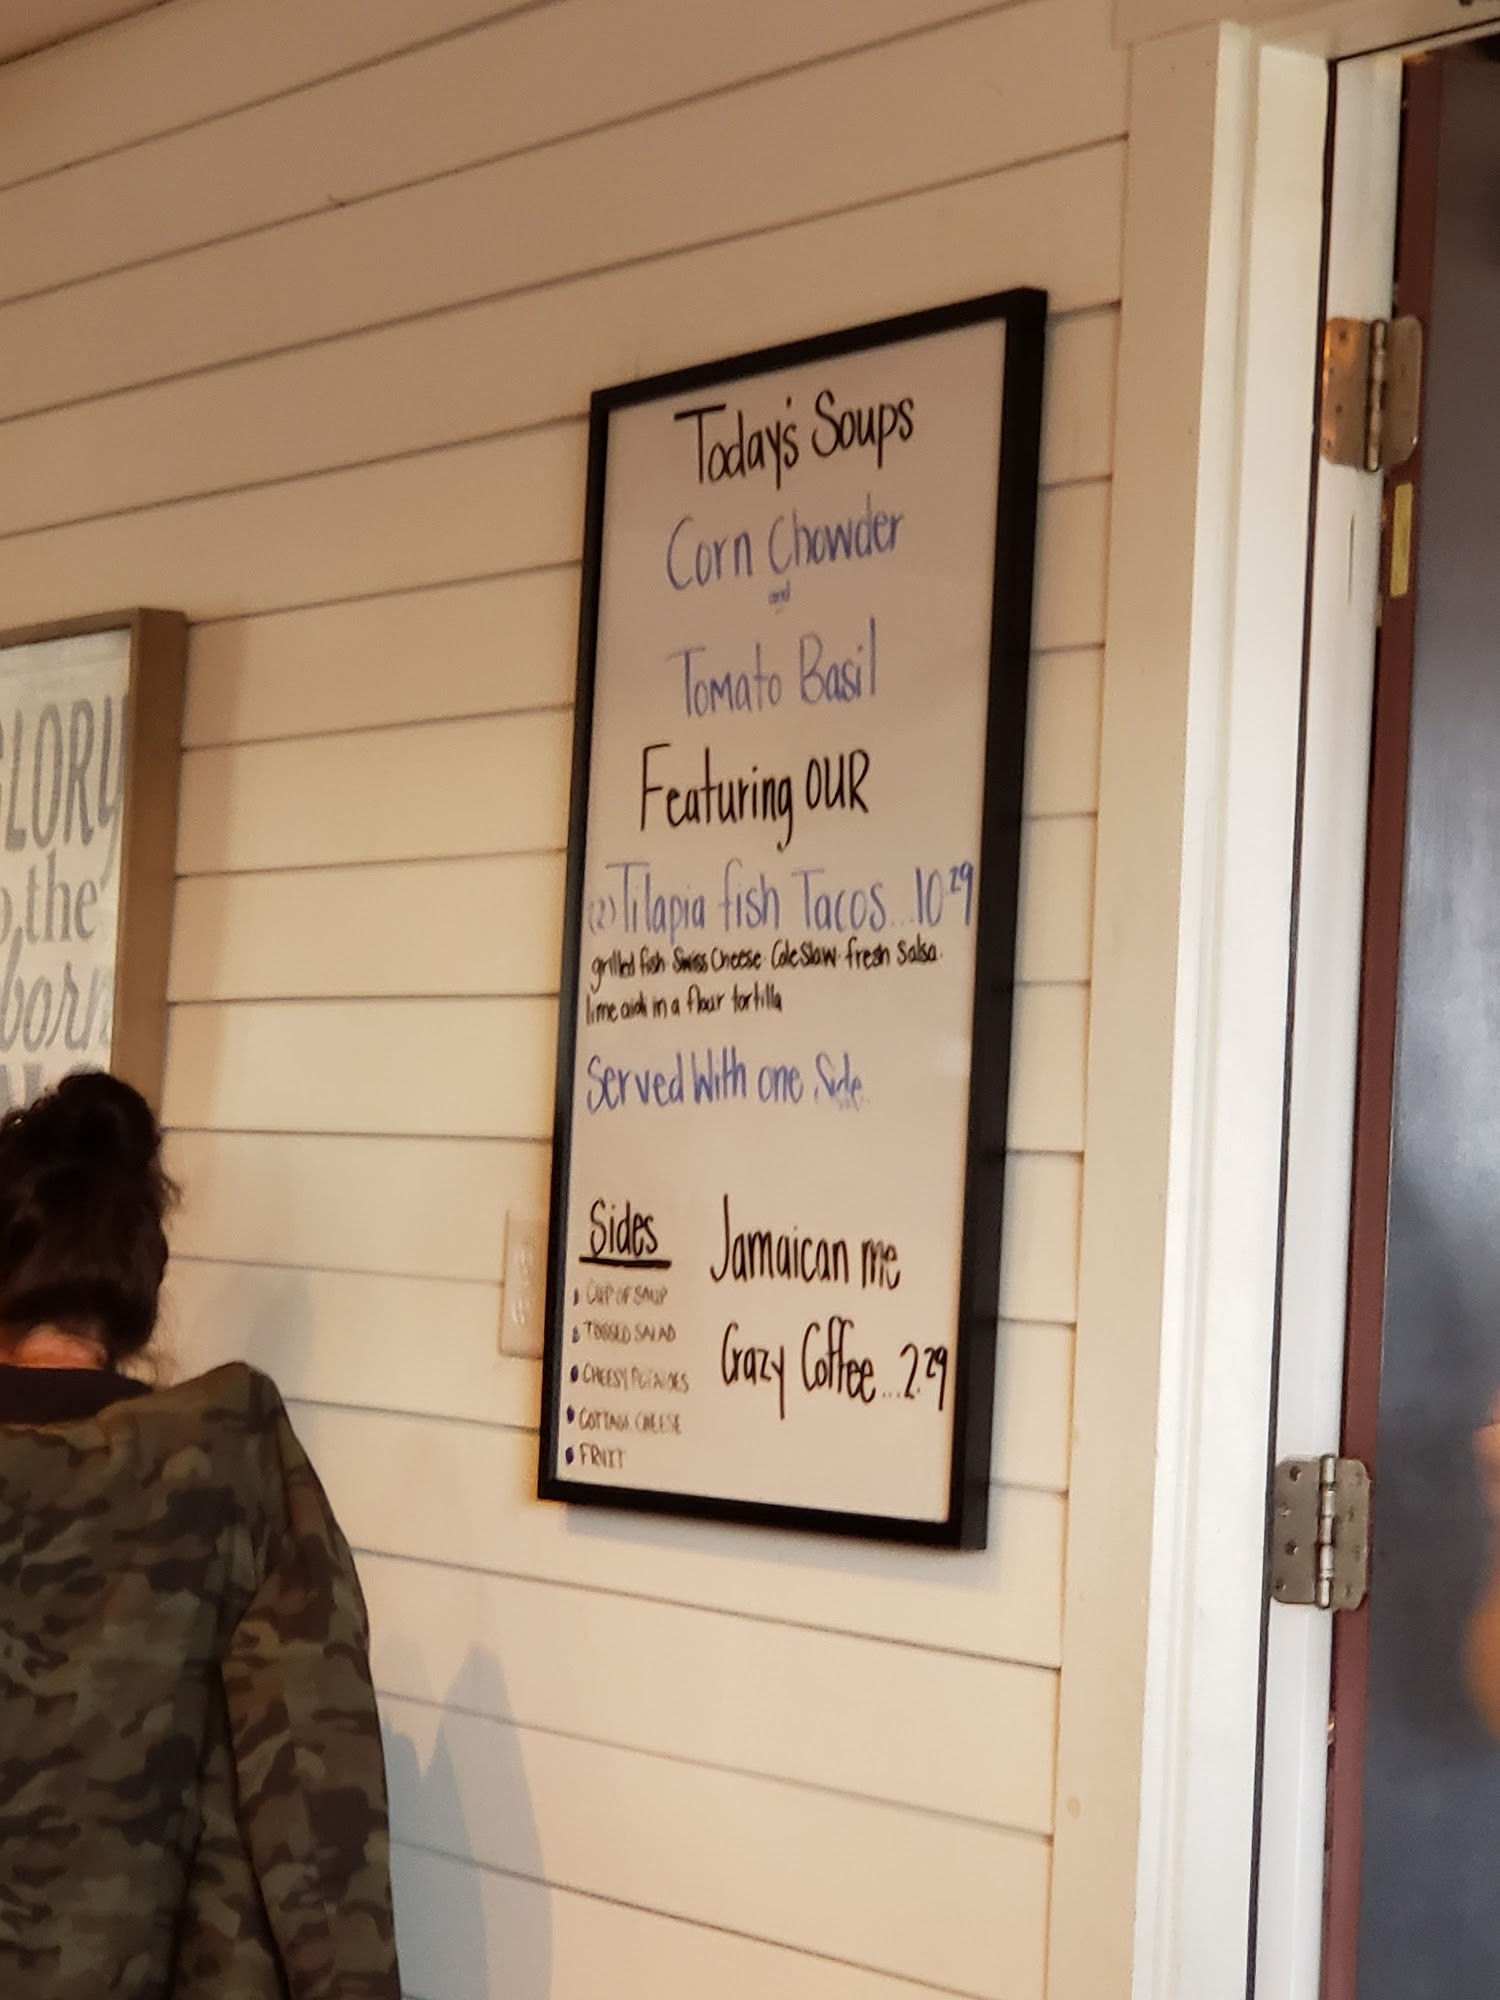 Today's Soups
Corn Chowder
and
Tomato Basil
Featuring OUR
(2) Tilapia fish Tacos...10.29
grilled fish Swiss Cheese Cole Slaw fresh Salsa
lime aioli in a flour tortilla
Served With one Side
Sides
CUP OF SOUP
TOSSED SALAD
CHEESY POTATOES
COTTAGE CHEESE
FRUIT
Jamaican me
Crazy Coffee...2.29
GLORY
the
born